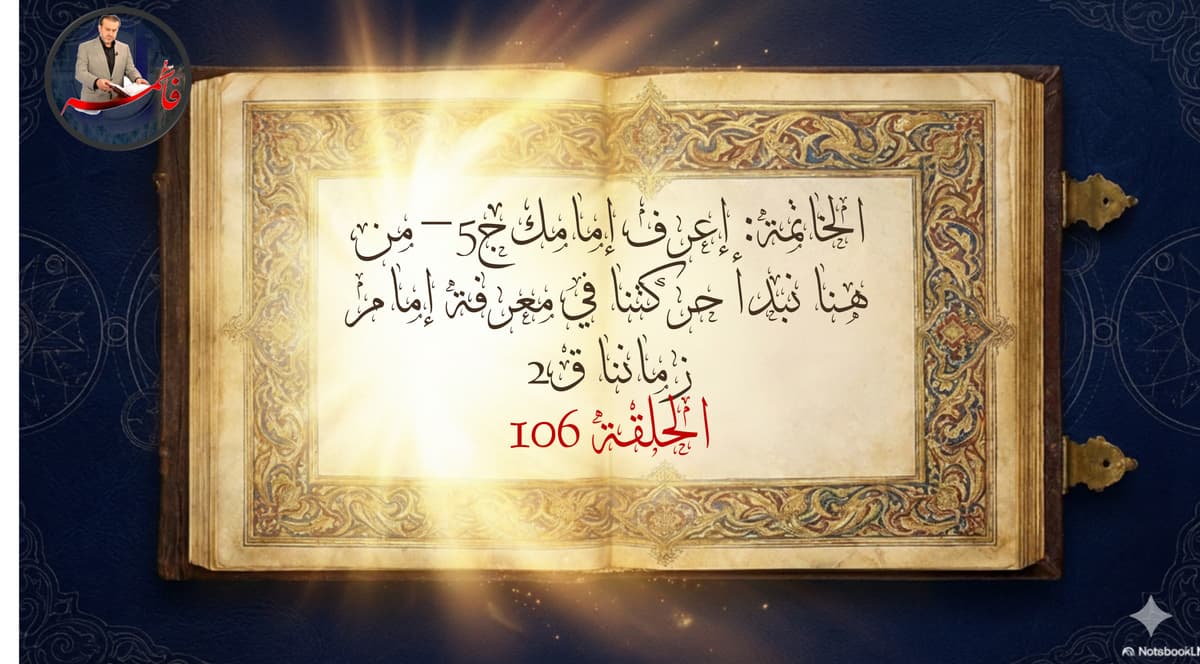 فاطمة
الخاتمة: إعرف إمامك ج5 – من
هنا نبدأ حركتنا في معرفة إمام
زماننا ق2
الحلقة 106
NotsbookLM